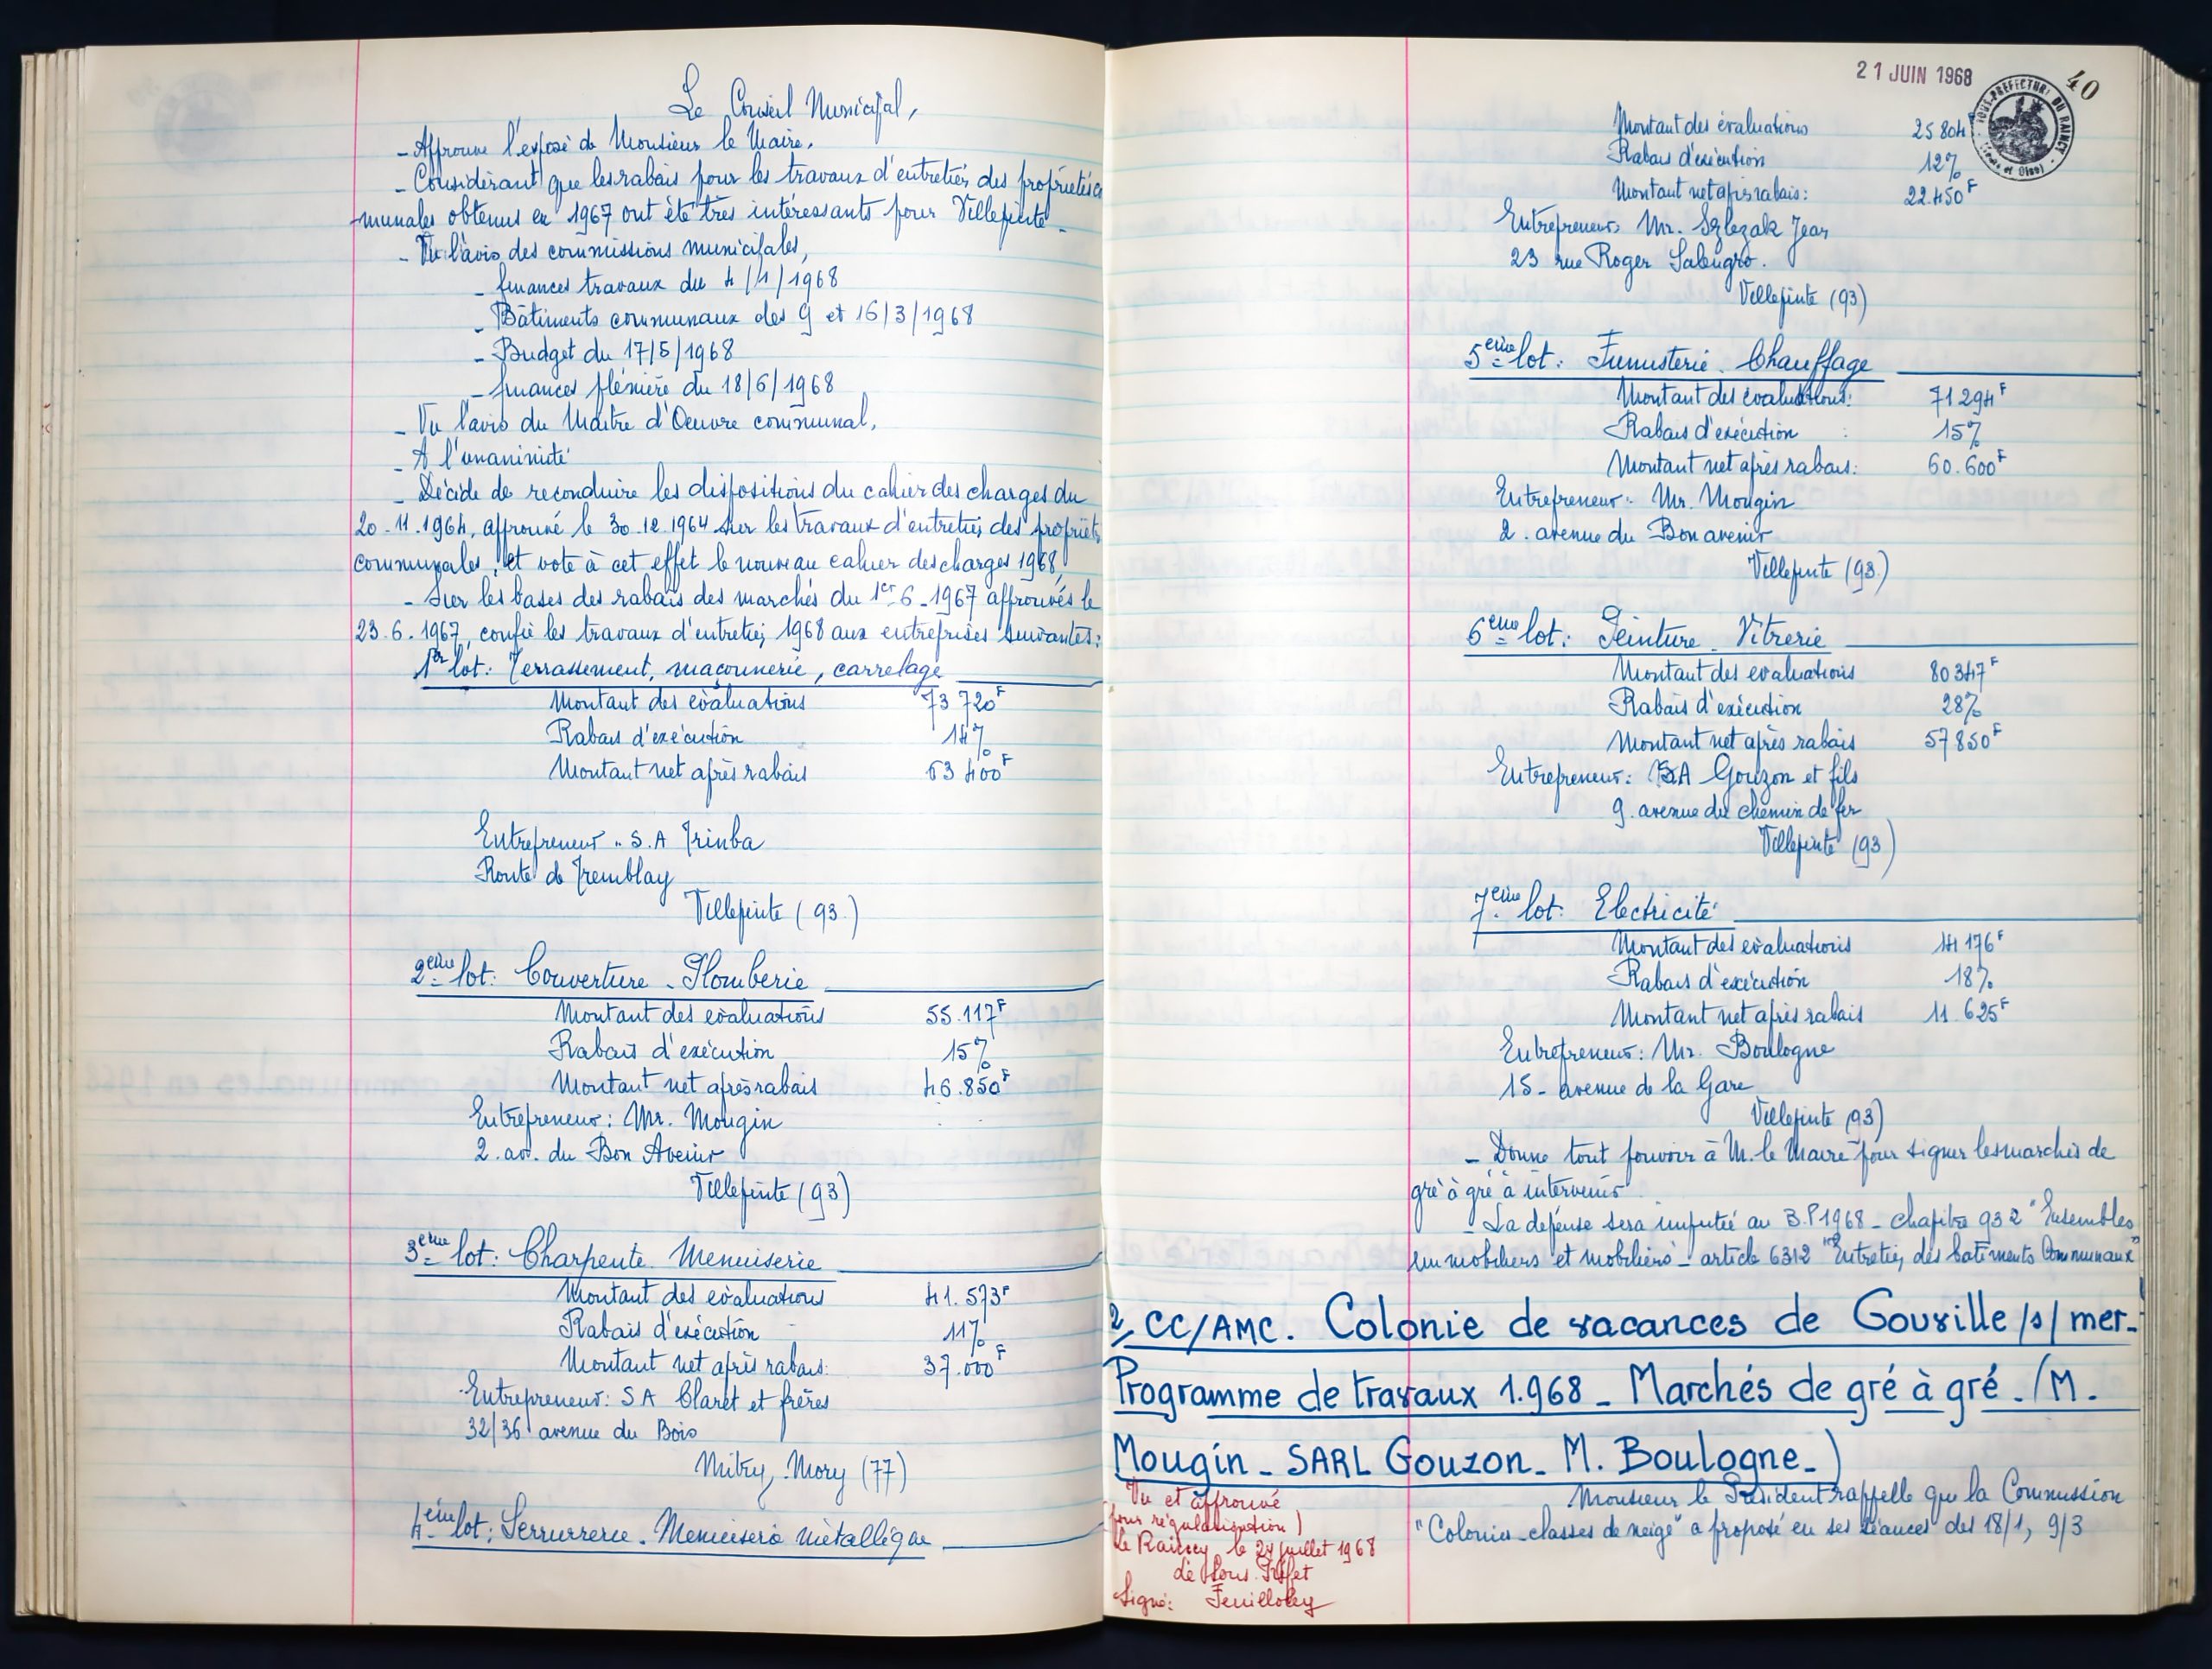 Le Conseil Municipal,
- Approuve l'exposé de Monsieur le Maire,
- Considérant que les rabais pour les travaux d'entretien des propriétés
-munales obtenus en 1967 ont été très intéressants pour Villepinte -
- Vu l'avis des commissions municipales,
- finances travaux du 4/1/1968
- Bâtiments communaux des 9 et 16/3/1968
- Budget du 17/5/1968
- finances plénière du 18/6/1968
- Vu l'avis du Maître d'Oeuvre communal,
- A l'unanimité
- Décide de reconduire les dispositions du cahier des charges du
20-11.1964, approuvé le 30.12.1964 sur les travaux d'entretien des propriétés
communales, et vote à cet effet le nouveau cahier des charges 1968,
- Sur les bases des rabais des marchés du 1er-6-1967 approuvés le
23.6.1967, confie les travaux d'entretien 1968 aux entreprises suivantes:
1er lot: Terrassement, maçonnerie, carrelage
Montant des évaluations 73 720F
Rabais d'exécution 14%
Montant net après rabais 63 400F
Entrepreneur.. S.A Trinba
Route de Tremblay
Villepinte (93.)
2ème lot: Couverture - Plomberie
Montant des évaluations 55.117F
Rabais d'exécution 15%
Montant net après rabais 46.850F
Entrepreneur: Mr. Mougin
2. av. du Bon Avenir
Villepinte (93)
3ème lot: Charpente. Menuiserie
Montant des évaluations 41.573F
Rabais d'exécution 11%
Montant net après rabais: 37.000F
Entrepreneur: SA Claret et frères
32/36 avenue du Bois
Mitry-Mory (77)
4ème lot: Serrurrerie. Menuiserie métallique
21 JUIN 1968
40
SOUS-PREFECTURE DU RAINCY
Montant des évaluations 25 804F
Rabais d'exécution 12%
Montant net après rabais: 22.450F
Entrepreneur: Mr. Szlezak Jean
23 rue Roger Salengro.
Villepinte (93)
5ème lot: Fumisterie. Chauffage
Montant des évaluations: 71 294F
Rabais d'exécution : 15%
Montant net après rabais: 60.600F
Entrepreneur: Mr. Mougin
2. avenue du Bon avenir
Villepinte (93.)
6ème lot: Peinture - Vitrerie
Montant des evaluations 80 347F
Rabais d'exécution 28%
Montant net après rabais 57 850F
Entrepreneur: SA Gouzon et fils
9. avenue du chemin de fer
Villepinte (93)
7ème lot: Electricité
Montant des évaluations 14 176F
Rabais d'exécution 18%
Montant net après rabais 11.625F
Entrepreneur: Mr. Boulogne
15- avenue de la Gare
Villepinte (93)
- Donne tout pouvoir à M. le Maire pour signer les marchés de
gré à gré à intervenir
- La dépense sera imputée au B.P 1968 - chapitre 932 "Ensembles
immobiliers et mobiliers - article 6312 "Entretien des batiments Communaux"
2, CC/AMC. Colonie de vacances de Gouville /s/ mer-
Programme de travaux 1.968 - Marchés de gré à gré - (M.
Mougin - SARL Gouzon - M. Boulogne -)
Vu et approuvé
(pour régularisation)
Le Raincy le 24 juillet 1968
Le Sous-Préfet
Signé: Feuilloley
Monsieur le Président rappelle que la Commission
"Colonies-classes de neige" a proposé en ses séances des 18/1, 9/3